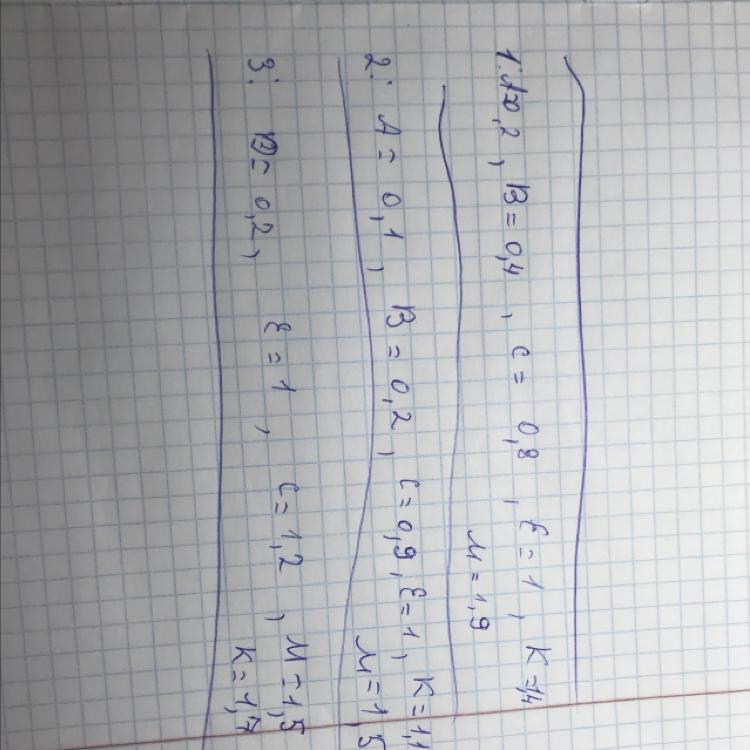 1. A=0,2, B=0,4, C=0,8, E=1, K=1,4
M=1,9
2: A=0,1, B=0,2, C=0,9, E=1, K=1,1
M=1,5
3: B=0,2, E=1, C=1,2, M=1,5
K=1,7